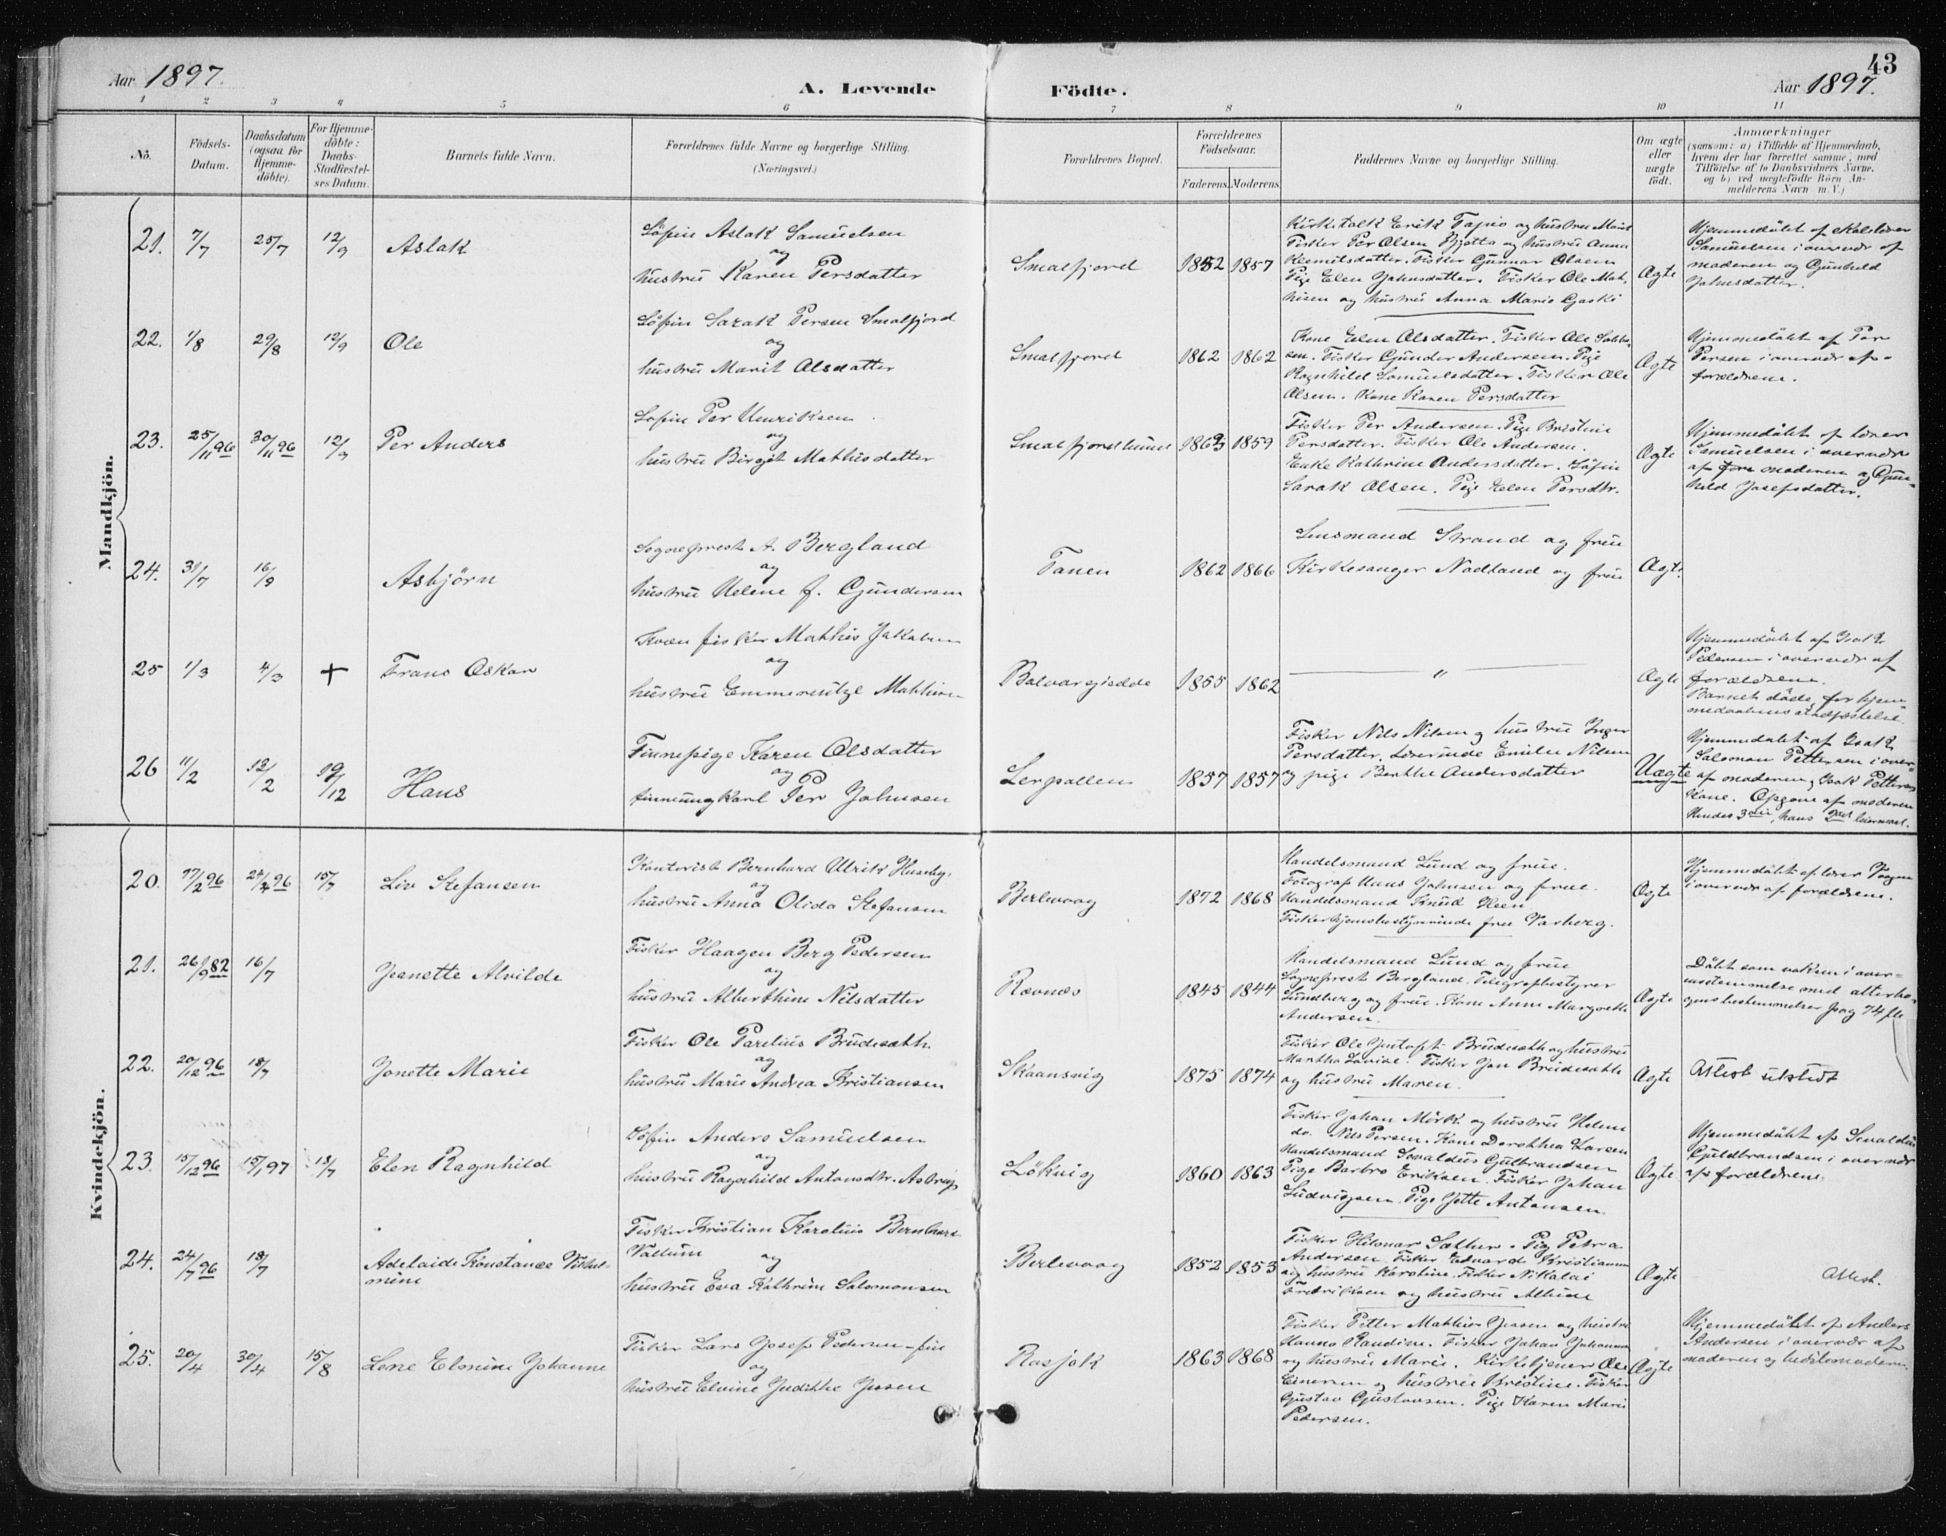 43
Aar 1897.
A. Levende Födte.
Aar 1897.
1 2 3 4 5 6 7 8 9 10 11
No.
Födsels-
Datum.
Daabsdatum
(ogsaa for
Hjemme-
döbte).
For Hjemme-
döbte:
Daabs-
Stadfæstel-
ses Datum.
Barnets fulde Navn.
Forældrenes fulde Navne og borgerlige Stilling.
(Næringsvei.)
Forældrenes Bopæl.
Forældrenes
Födselsaar.
Faderens. Moderens.
Faddernes Navne og borgerlige Stilling.
Om ægte
eller
uægte
födt.
Anmærkninger
(saasom: a) i Tilfælde af Hjemmedaab,
hvem der har forrettet samme, med
Tilföielse af to Daabsvidners Navne,
og b) ved uægtefödte Börn An-
melderens Navn m. V.)
Mandkjön.
21. 7/7 25/7 12/9 Aslak
Löfin Aslak Samuelsen
og
hustru Karen Persdatter
Smalfjord 1852 1857
Kirketolk Erik Tapio og hustru Marit
Fisker Per Olsen Bjotta og hustru Anna
Klemitsdatter. Fisker Gunnar Olsen
Pige Elen Johnsdatter. Fisker Ole Mat-
hisen og hustru Anna Marie Gaski
Ægte
Hjemmedöbt af skolelærer
Samuelsen i overvær af
moderen og Gunhild
Johnsdatter.
22. 1/8 29/8 12/9 Ole
Löfin Sarak Persen Smalfjord
og
hustru Marit Olsdatter
Smalfjord 1862 1862
Kone Elen Olsdatter. Fisker Ole
Fisker Gunder Andersen. Pige
Ragnhild Samuelsdatter. Fisker Ole
Olsen. Kone Karen Persdatter
Ægte
Hjemmedöbt af Per
Persen i overvær af
forældrene.
23. 25/11 96 30/11 96 12/9 Per Anders
Löfin Per Henriksen
og
hustru Birgit Mathisdatter
Smalfjordbunn 1863 1859
Fisker Per Andersen. Pige Kristine
Persdatter. Fisker Ole Andersen.
Enke Kathrine Andersdatter. Löfin
Sarak Olsen. Pige Elen Persdtr.
Ægte
Hjemmedöbt af lærer
Samuelsen i overvær
af moderen og Gun-
hild Josefsdatter.
24. 31/7 16/9 Asbjörn
Sogneprest A. Bergland
og
hustru Helene f. Gundersen
Tanen 1862 1866
Lensmand Strand og frue
Kirkesanger Nadland og frue
Ægte
25 1/3 4/3 + Frans Oskar
Kvæn fisker Mathis Jakobsen
og
hustru Emmerentze
1855 1862
"
Ægte
Hjemmedöbt af Isak
Pedersen i overvær af
forældrene.
Barnet döde för hjem-
medaabens stadfæstelse.
26 11/2 12/2 19/12 Hans
Finnepige Karen Olsdatter
og
finneungkarl Per Johnsen
Lerpollen 1857 1857
Fisker Nils Nilsen og hustru Inger
Persdatter. Lærerinde Emilie Nilsen
og pige Berthe Andersdatter
Uægte
Hjemmedöbt af Isak
Salomon Pettersen i over-
af moderen, Isak Pettersens
Kone. Opgave af moderen
Hendes 3die, hans 2det leiermaal.
Kvindekjön.
20. 17/2 96 24/2 96 15/7 Liv Stefansen
Kontorist Bernhard Ulrik Huseby
og
hustru Anna Olida Stefansen
Berlevaag 1872 1868
Handelsmand Lund og frue.
Fotograf Hans Johnsen og frue.
Handelsmand Knud Heen
Fiskerhjemsbestyrerinde frue Varberg.
Ægte
Hjemmedöbt af lærer
i overvær af forældrene.
21. 26/9 82 16/7 Jeanette Alvilde
Fisker Haagen Berg Pedersen
og
hustru Alberthine Nilsdatter
Rævnæs 1845 1844
Handelsmand Lund og frue
Sogneprest Bergland. Telegrafbestyrer
Lundberg og frue. Kone Anne Margrethe
Andersen.
Ægte
Döbt som voksen i over-
enstemmelse med alterbo-
gens bestemmelser pag 74 flg
22. 20/12 96 18/7 Jonette Marie
Fisker Ole Parelius Brudesæth
og
hustru Marie Andrea Kristiansen
Skaansvig 1875 1874
Fisker Ole Brudesæth og hustru
Martha Lovise. Fisker Jon Brudesæth
og hustru Maren.
Ægte
Attest utstedt
23. 15/12 96 15/1 97 18/7 Elen Ragnhild
Löfin Anders Samuelsen
og
hustru Ragnhild Antonsdtr. Astrup
Lökvig 1860 1863
Fisker Johan Mörk og hustru Helene
do. Nils Persen. Kone Dorothea Larsen
Handelsmand Sevaldus Gulbrandsen
Pige Barbro Eriksen. Fisker Johan
Ludvigsen. Pige Jette Antonsen
Ægte
Hjemmedöbt af Sevaldus
Guldbrandsen i overvær
af forældrene.
24. 24/7 96 18/7 Adelaide Konstance Vilhel-
mine
Fisker Kristian Karelius Bernhard
Vallum
og
hustru Eva Kathrine Salomonsen
Berlevaag 1852 1853
Fisker Hilmar Sæther. Pige Petra
Andersen. Fisker Edvard Kristiansen
og hustru Karoline. Fisker Nikolai
Fredriksen og hustru Altine
Ægte
Attest.
25. 20/4 30/4 15/8 Lene Elonine Johanne
Fisker Lars Josef Pedersen - fin
og
hustru Elvine Judithe Jessen
Rasjok 1863 1868
Fisker Petter Mathis Jessen og hustru
Hanna Randine. Fisker Johan Johannesen
og hustru Marie. Kirketjener Ole
Einersen og hustru Kristine. Fisker
Gustav Gustavsen. Pige Karen Marie
Pedersen.
Ægte
Hjemmedöbt af Anders
Andersen i overvær af
moderen og bedstemoderen.